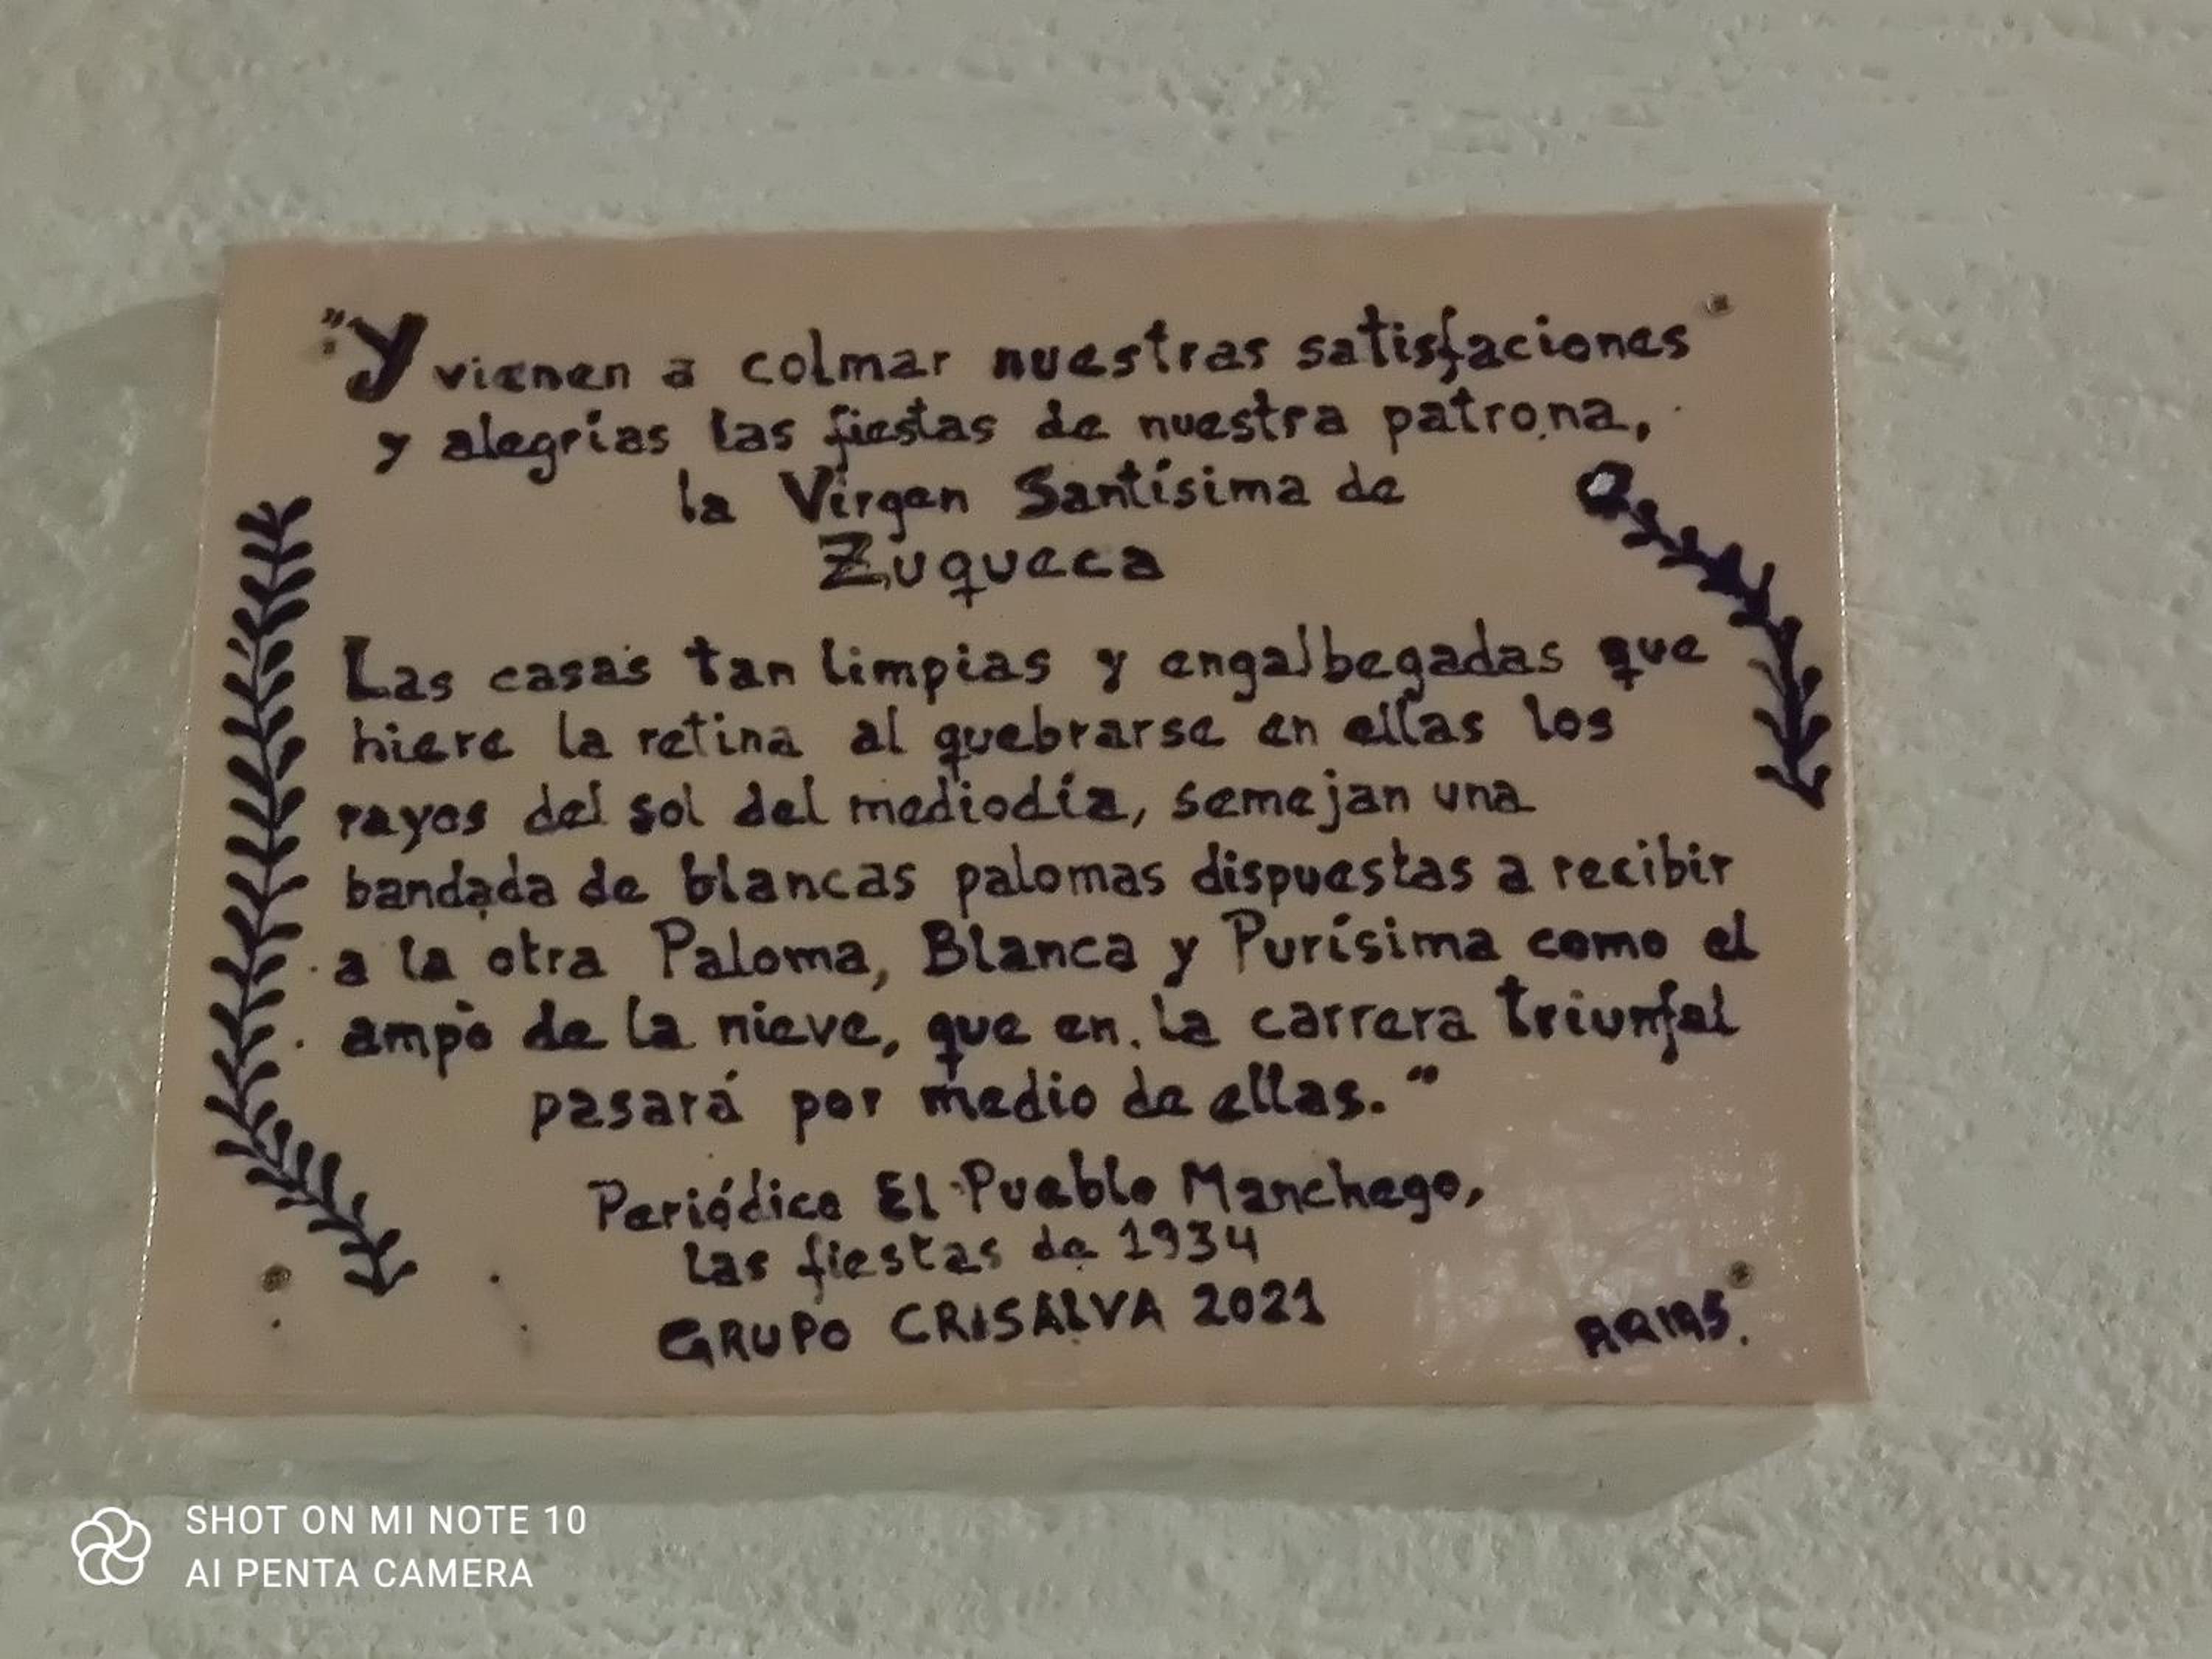 "Y vienen a colmar nuestras satisfaciones
y alegrías las fiestas de nuestra patrona,
la Virgen Santísima de
Zuqueca
Las casas tan limpias y engalbegadas que
hiere la retina al quebrarse en ellas los
rayos del sol del mediodía, semejan una
bandada de blancas palomas dispuestas a recibir
a la otra Paloma, Blanca y Purísima como el
ampo de la nieve, que en la carrera triunfal
pasará por medio de ellas."
Periódico El Pueblo Manchego,
las fiestas de 1934
GRUPO CRISALVA 2021
ARIAS.
SHOT ON MI NOTE 10
AI PENTA CAMERA